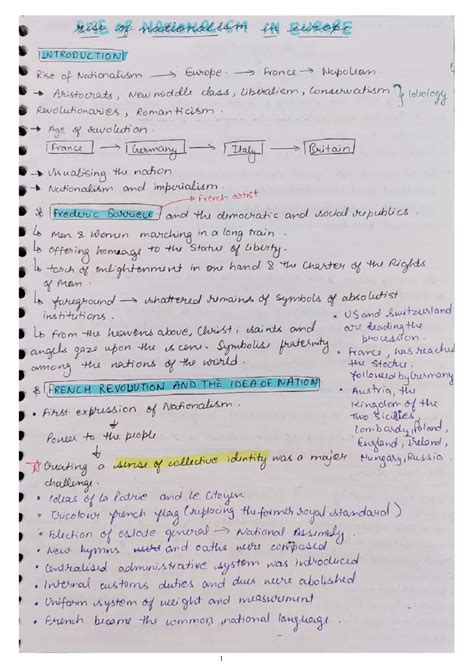 rise of nationalism in europe
INTRODUCTION
Rise of Nationalism → Europe → France → Napoleon
→ Aristocrats, New middle class, Liberalism, Conservatism } Ideology
Revolutionaries, Romanticism.
→ Age of revolution.
France → Germany → Italy → Britain
→ Visualising the nation
→ Nationalism and imperialism.
→ French artist
Frederic Sorrieu and the democratic and social republics.
↳ Men & Women marching in a long train.
↳ offering homeage to the Statue of Liberty.
↳ torch of enlightenment in one hand & the Charter of the Rights
of Man.
↳ foreground → shattered remains of Symbols of absolutist
institutions.
↳ From the heavens above, Christ, saints and
angels gaze upon the scene. Symbolise fraternity
among the nations of the world.
• US and Switzerland
are leading the
procession.
• France, has reached
the Statue.
followed by Germany
• Austria, the
Kingdom of the
Two Sicilies,
Lombardy, Poland,
England, Ireland,
Hungary, Russia.
FRENCH REVOLUTION AND THE IDEA OF NATION
• First expression of Nationalism.
Power to the people
Creating a sense of collective identity was a major
challenge.
• Ideas of La Patrie and Le Citoyen
• Tricolour french flag (replacing the former royal standard)
• Election of estate general → National Assembly.
• New hymns and oaths were composed
• Centralised administrative system was introduced
• Internal customs duties and dues were abolished
• Uniform system of weight and measurement
• French became the common, national language.
1